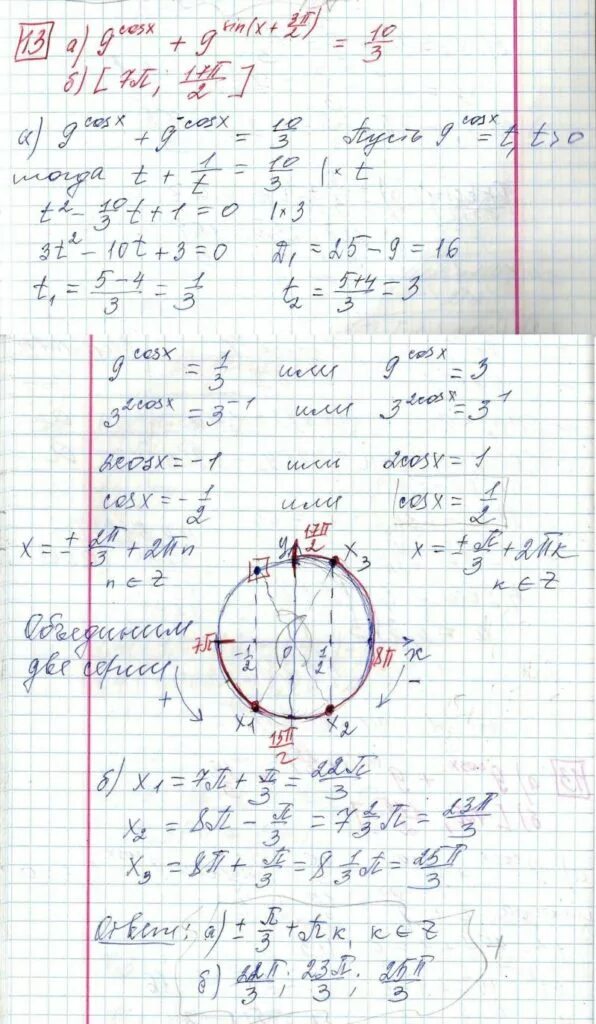 13 а) 9^cosx + 9^sin(x + 3π/2) = 10/3
б) [7π; 17π/2]
а) 9^cosx + 9^-cosx = 10/3 Пусть 9^cosx = t, t>0
тогда t + 1/t = 10/3 |× t
t² - 10/3 t + 1 = 0 |×3
3t² - 10t + 3 = 0 Д₁ = 25 - 9 = 16
t₁ = (5-4)/3 = 1/3 t₂ = (5+4)/3 = 3
9^cosx = 1/3 или 9^cosx = 3
3^2cosx = 3^-1 или 3^2cosx = 3^1
2cosx = -1 или 2cosx = 1
cosx = -1/2 или cosx = 1/2
x = ± 2π/3 + 2πn x = ± π/3 + 2πk
n ∈ Z k ∈ Z
y 17π/2 x₃
Объединим
две серии
7π -1/2 0 1/2 8π x
+ -
x₁ x₂
15π/2
б) x₁ = 7π + π/3 = 22π/3
x₂ = 8π - π/3 = 7 2/3 π = 23π/3
x₃ = 8π + π/3 = 8 1/3 π = 25π/3
Ответ: а) ± π/3 + πk, k ∈ Z
б) 22π/3; 23π/3; 25π/3 +